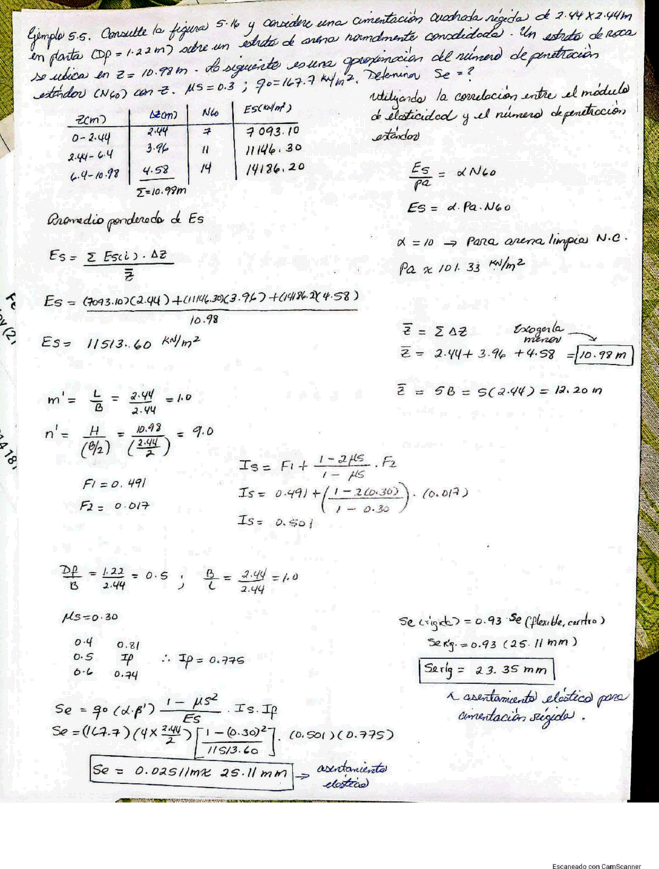 Ejemplo 5.5. Consulte la figura 5.16 y considere una cimentación cuadrada rígida de 2.44 x 2.44m
en planta (Dp = 1.22 m) sobre un estrato de arena normalmente consolidada. Un estrato de roca
se ubica en z = 10.98 m. Lo siguiente es una aproximación del número de penetración
estándar (N60) con z. μs = 0.3 ; qo = 167.7 kN/m². Determinar Se = ?
Z(m) ΔZ(m) N60 Es(kN/m²)
0 - 2.44 2.44 7 7093.10
2.44 - 6.4 3.96 11 11146.30
6.4 - 10.98 4.58 14 14186.20
Σ = 10.98m
utilizando la correlación entre el módulo
de elasticidad y el número de penetración
estándar
Es/pa = α N60
Es = α · Pa · N60
α = 10 → Para arena limpia N.C.
Pa ≈ 101.33 kN/m²
Promedio ponderado de Es
Es = Σ Es(i) · ΔZ / z̄
Es = (7093.10)(2.44) + (11146.30)(3.96) + (14186.2)(4.58) / 10.98
Es = 11513.60 kN/m²
z̄ = Σ ΔZ Escogerla menor
z̄ = 2.44 + 3.96 + 4.58 = 10.98 m
z̄ = 5B = 5(2.44) = 12.20 m
m' = L/B = 2.44/2.44 = 1.0
n' = H/(B/2) = 10.98/(2.44/2) = 9.0
F1 = 0.491
F2 = 0.017
Is = F1 + 1 - 2μs / 1 - μs · F2
Is = 0.491 + (1 - 2(0.30) / 1 - 0.30) · (0.017)
Is = 0.501
Df/B = 1.22/2.44 = 0.5 ; B/L = 2.44/2.44 = 1.0
μs = 0.30
0.4 0.81
0.5 Ip ∴ Ip = 0.775
0.6 0.74
Se = qo (α·β') 1 - μs² / Es · Is · Ip
Se = (167.7)(4 x 2.44/2) [1 - (0.30)² / 11513.60] · (0.501)(0.775)
Se = 0.02511m ≈ 25.11 mm → asentamiento
elástico
Se (rígida) = 0.93 Se (flexible, centro)
Se rg. = 0.93 (25.11 mm)
Se rg = 23.35 mm
asentamiento elástico para
cimentación rígida.
Escaneado con CamScanner